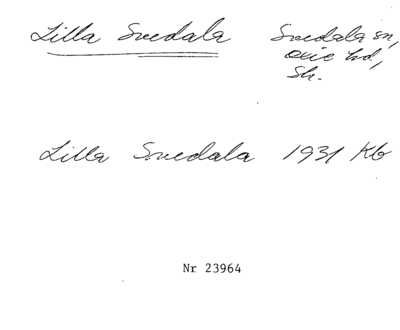 Lilla Svedala Svedala sn,
Oxie hd,
Sk.
Lilla Svedala 1931 Kb
Nr 23964